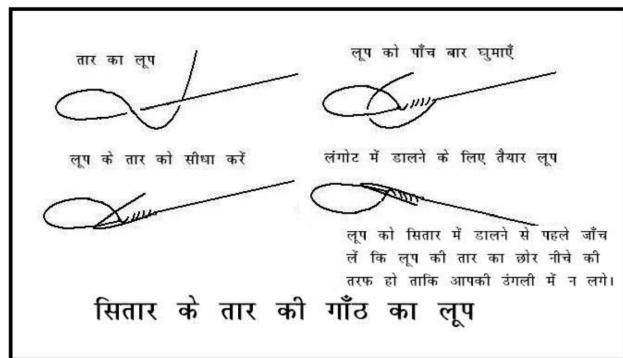 तार का लूप
लूप को पाँच बार घुमाएँ
लूप के तार को सीधा करें
लंगोट में डालने के लिए तैयार लूप
लूप को सितार में डालने से पहले जाँच
लें कि लूप की तार का छोर नीचे की
तरफ हो ताकि आपकी उंगली में न लगे।
सितार के तार की गाँठ का लूप